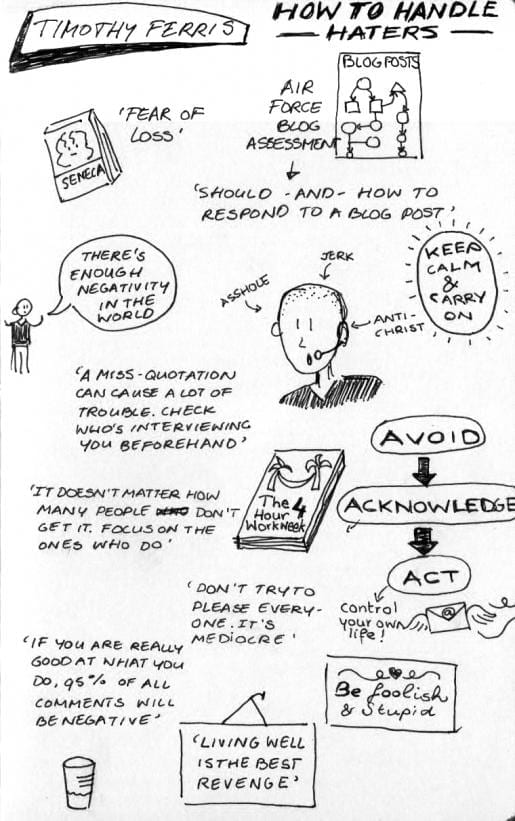 TIMOTHY FERRIS
HOW TO HANDLE
— HATERS —
'FEAR OF
LOSS'
SENECA
AIR
FORCE
BLOG
ASSESSMENT
BLOG POSTS
'SHOULD -AND- HOW TO
RESPOND TO A BLOG POST'
THERE'S
ENOUGH
NEGATIVITY
IN THE
WORLD
ASSHOLE
JERK
ANTI-
CHRIST
KEEP
CALM
&
CARRY
ON
'A MISS-QUOTATION
CAN CAUSE A LOT OF
TROUBLE. CHECK
WHO'S INTERVIEWING
YOU BEFOREHAND'
AVOID
ACKNOWLEDGE
ACT
'IT DOESN'T MATTER HOW
MANY PEOPLE DON'T
GET IT. FOCUS ON THE
ONES WHO DO'
The 4
Hour
Workweek
'DON'T TRY TO
PLEASE EVERY-
ONE. IT'S
MEDIOCRE'
Control
your own
life!
@
'IF YOU ARE REALLY
GOOD AT WHAT YOU
DO, 95% OF ALL
COMMENTS WILL
BE NEGATIVE'
Be foolish
& Stupid
'LIVING WELL
IS THE BEST
REVENGE'